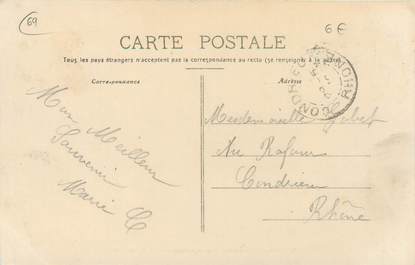 69
6€
CARTE POSTALE
Tous les pays étrangers n'acceptent pas la correspondance au recto (se renseigner à la poste)
Correspondance
Adresse
CONDRIEU RHÔNE
Mon Meilleur
Souvenir
Marie C
Mademoiselle
Au
Condrieu
Rhône